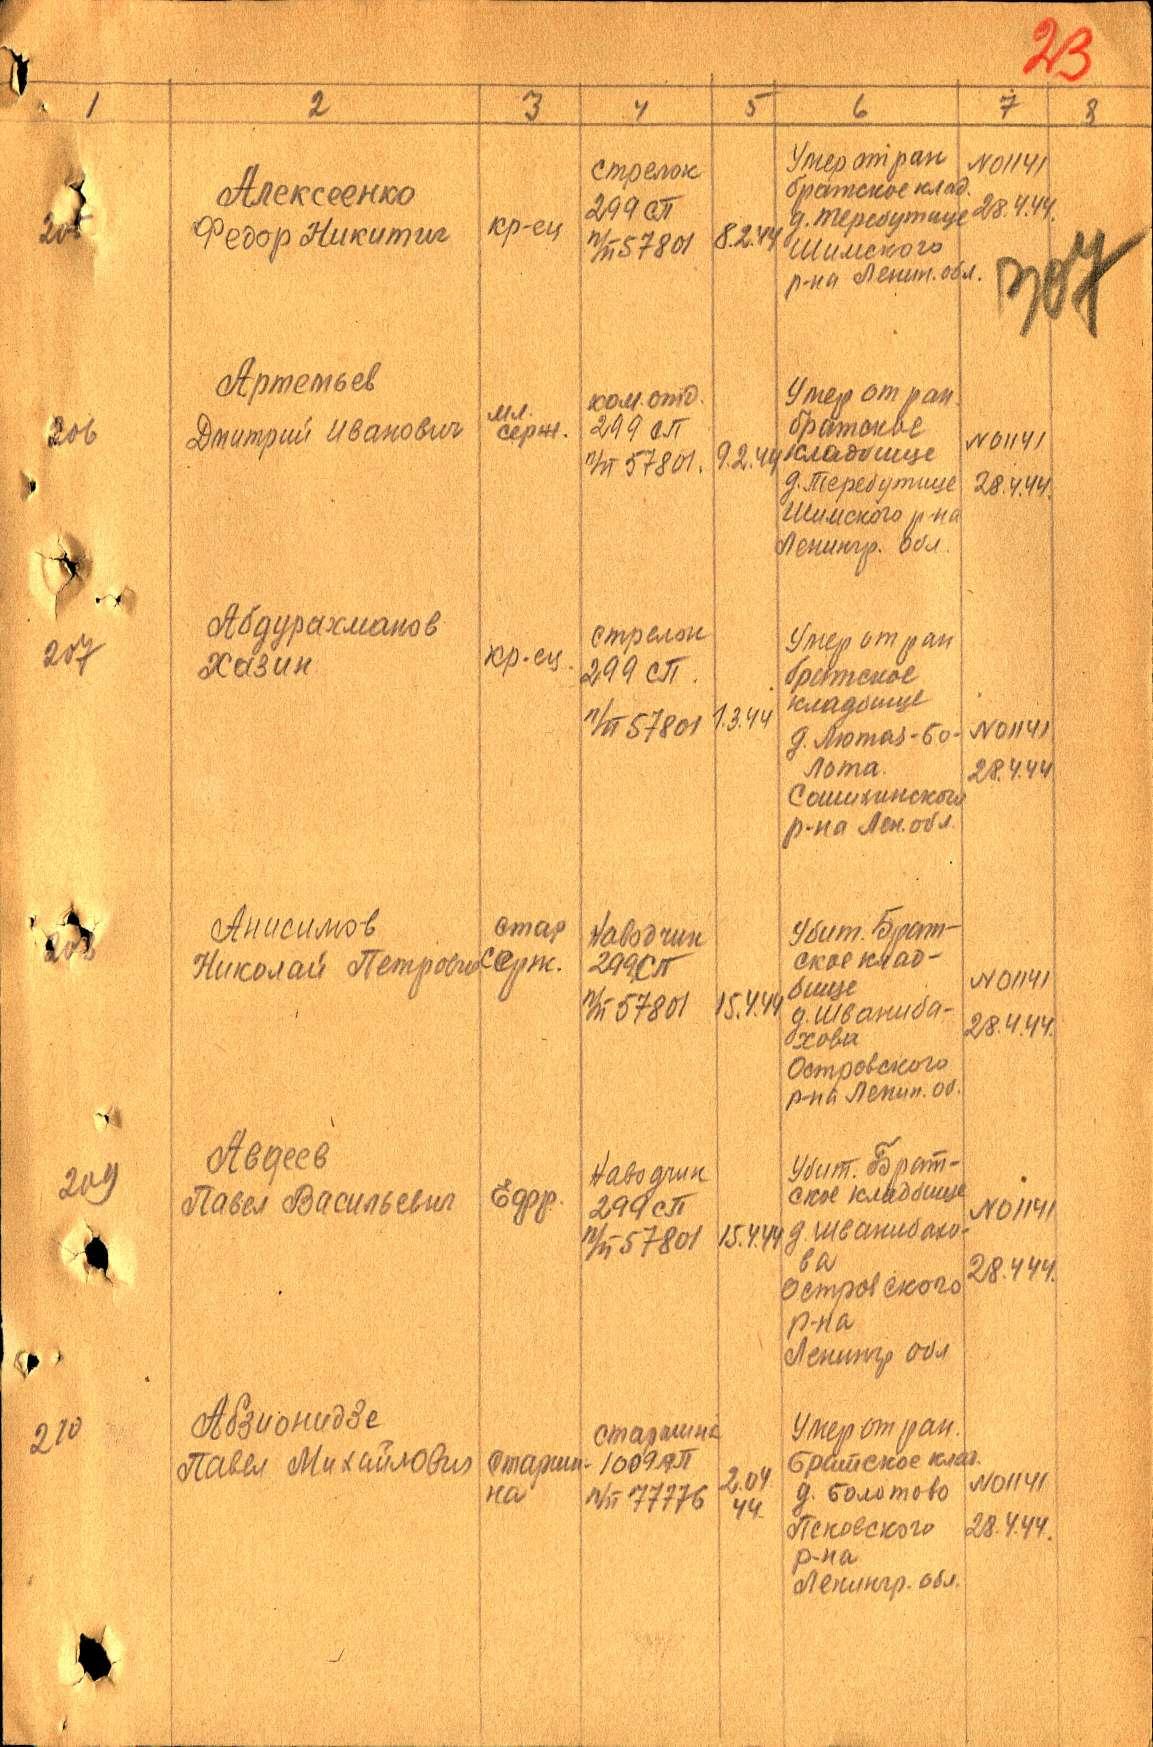 23
1 2 3 4 5 6 7 8
205
Алексеенко
Федор Никитич
кр-ец
стрелок
299 СП
п/п 57801
8.2.44
Умер от ран
братское клад.
д. Теребутице
Шимского
р-на Ленин. обл.
N01141
28.4.44.
307
206
Артемьев
Дмитрий Иванович
мл.
серж.
ком. отд.
299 СП
п/п 57801.
9.2.44
Умер от ран
братское
кладбище
д. Теребутице
Шимского р-на
Ленингр. обл.
N01141
28.4.44.
207
Абдурахманов
Хазин
кр-ец.
стрелок
299 СП.
п/п 57801
1.3.44
Умер от ран
братское
кладбище
д. Лютая-Бо-
лота
Сошихинского
р-на Лен. обл.
N01141
28.4.44
208
Анисимов
Николай Петрович
стар
серж.
Наводчик
299 СП
п/п 57801
15.4.44
Убит. Брат-
ское клад-
бище
д. Шваниба-
хова
Островского
р-на Ленин. об.
N01141
28.4.44.
209
Авдеев
Павел Васильевич
Ефр.
Наводчик
299 СП
п/п 57801
15.4.44
Убит. Брат-
ское кладбище
д. Шванибахо-
ва
Островского
р-на
Ленингр обл
N01141
28.4.44.
210
Абзионидзе
Павел Михайлович
Старши-
на
старшина
1009 АП
п/п 77776
2.04
44.
Умер от ран.
Братское клад.
д. Болотово
Псковского
р-на
Ленингр. обл.
N01141
28.4.44.